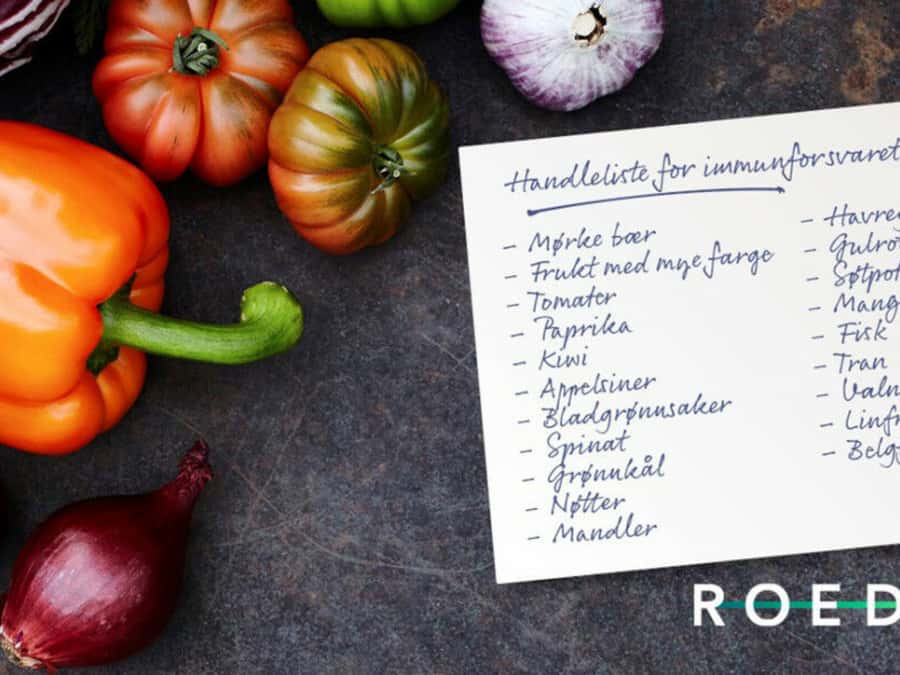 Handleliste for immunforsvaret
- Mørke bær
- Frukt med mye farge
- Tomater
- Paprika
- Kiwi
- Appelsiner
- Bladgrønnsaker
- Spinat
- Grønnkål
- Nøtter
- Mandler
- Havre
- Gulro
- Søtpot
- Mang
- Fisk
- Tran
- Valn
- Linfr
- Belg
ROED